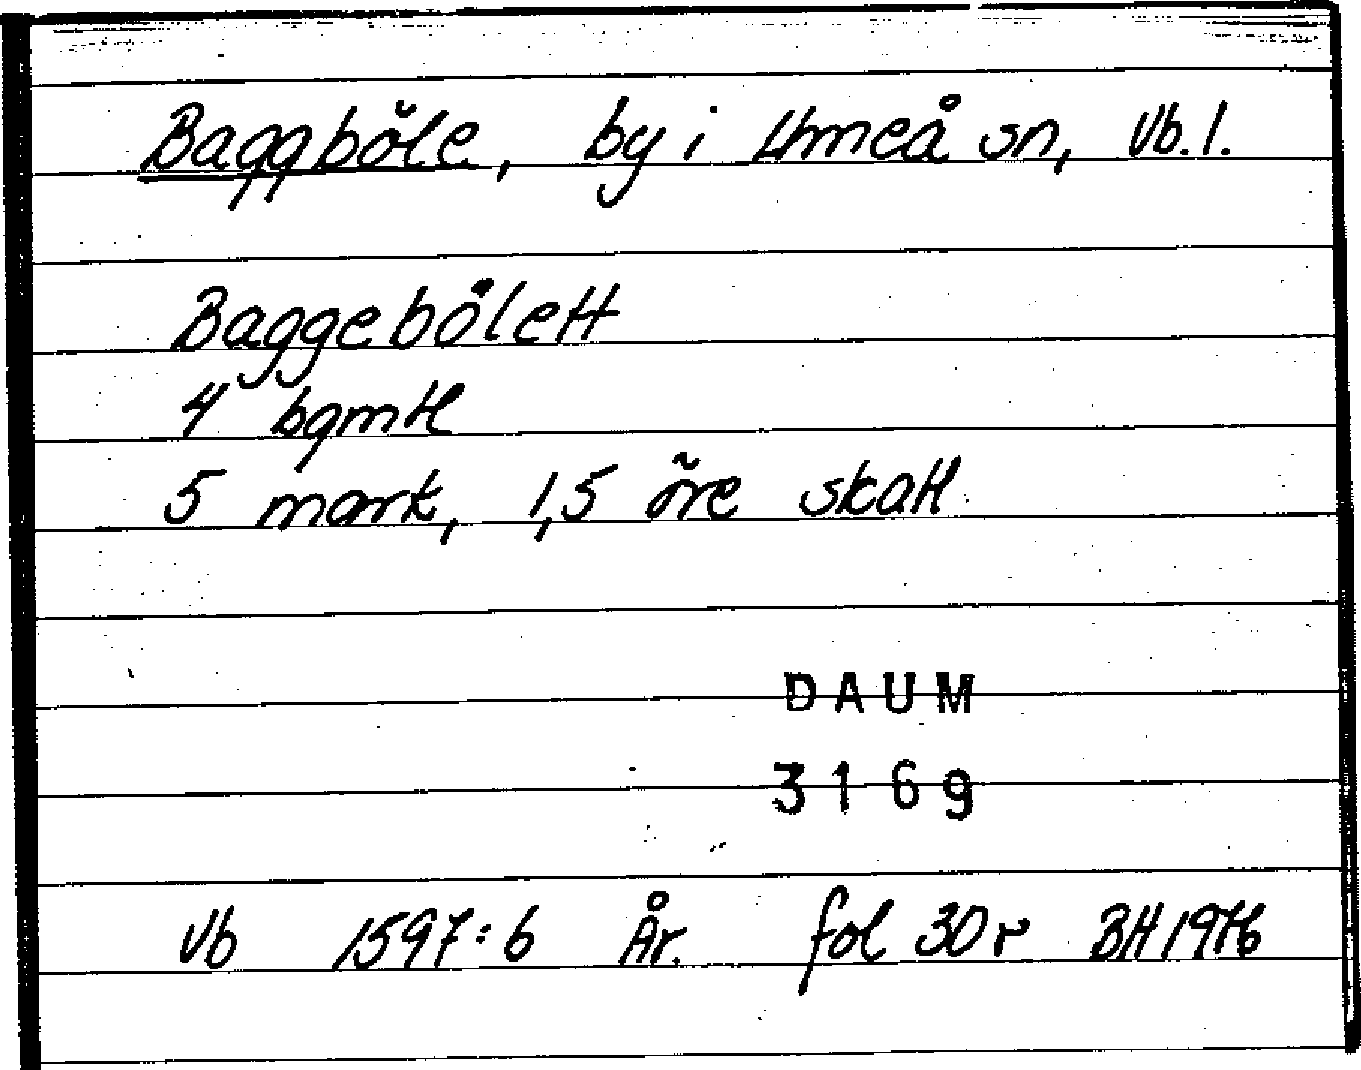 Baggböle, by i Umeå sn, Vb. l.
Baggebölett
4 bgmtl
5 mark, 1,5 öre skatt
DAUM
3169
Vb 1597:6 År. fol 30 r BH 1976